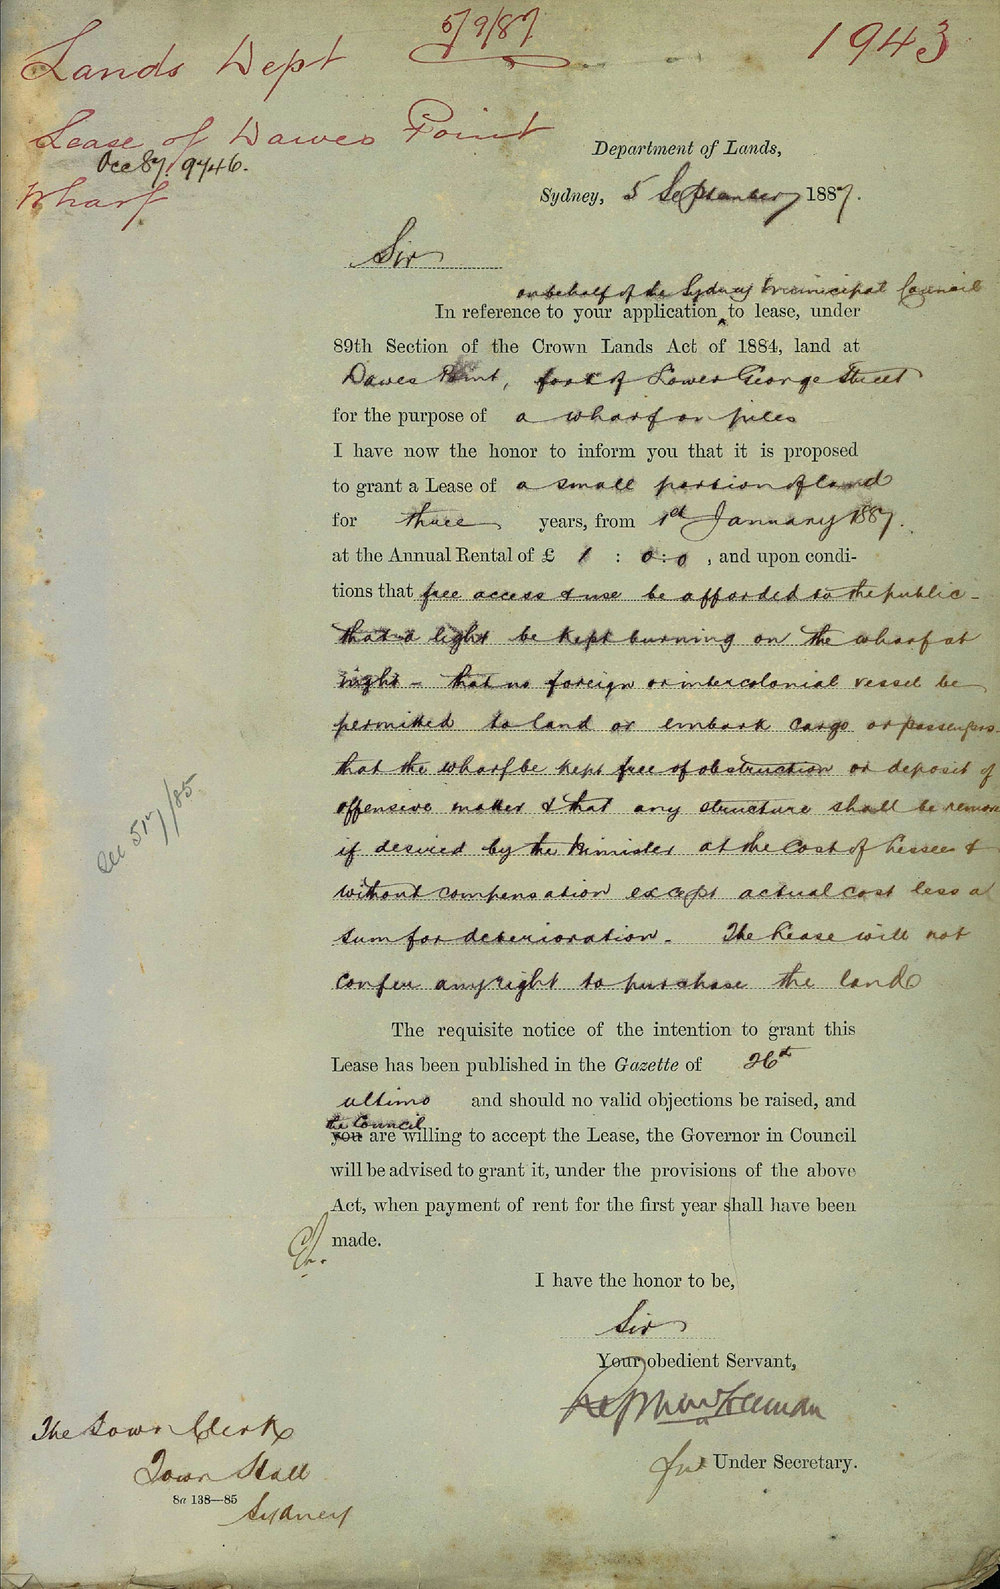 Lands Dept 5/9/87 1943
Lease of Dawes Point
Occ 87. 9746.
Wharf
Department of Lands,
Sydney, 5 September 1887.
Sir
on behalf of the Sydney Municipal Council
In reference to your application ‸ to lease, under
89th Section of the Crown Lands Act of 1884, land at
Dawes Point, foot of Lower George Street
for the purpose of a wharf on piles
I have now the honor to inform you that it is proposed
to grant a Lease of a small portion of land
for three years, from 1st January 1887.
at the Annual Rental of £ 1 : 0 : 0 , and upon condi-
tions that free access & use be afforded to the public -
that a light be kept burning on the wharf at
night - that no foreign or intercolonial vessel be
permitted to land or embark cargo or passengers -
that the wharf be kept free of obstruction or deposit of
offensive matter & that any structure shall be remove
if desired by the Minister at the cost of Lessee &
without compensation except actual cost less a
sum for deterioration - The Lease will not
confer any right to purchase the land
The requisite notice of the intention to grant this
Lease has been published in the Gazette of 26th
ultimo and should no valid objections be raised, and
the Council
you are willing to accept the Lease, the Governor in Council
will be advised to grant it, under the provisions of the above
Act, when payment of rent for the first year shall have been
made.
I have the honor to be,
Sir
Your obedient Servant,
for Under Secretary.
The Town Clerk
Town Hall
8a 138—85
Sydney